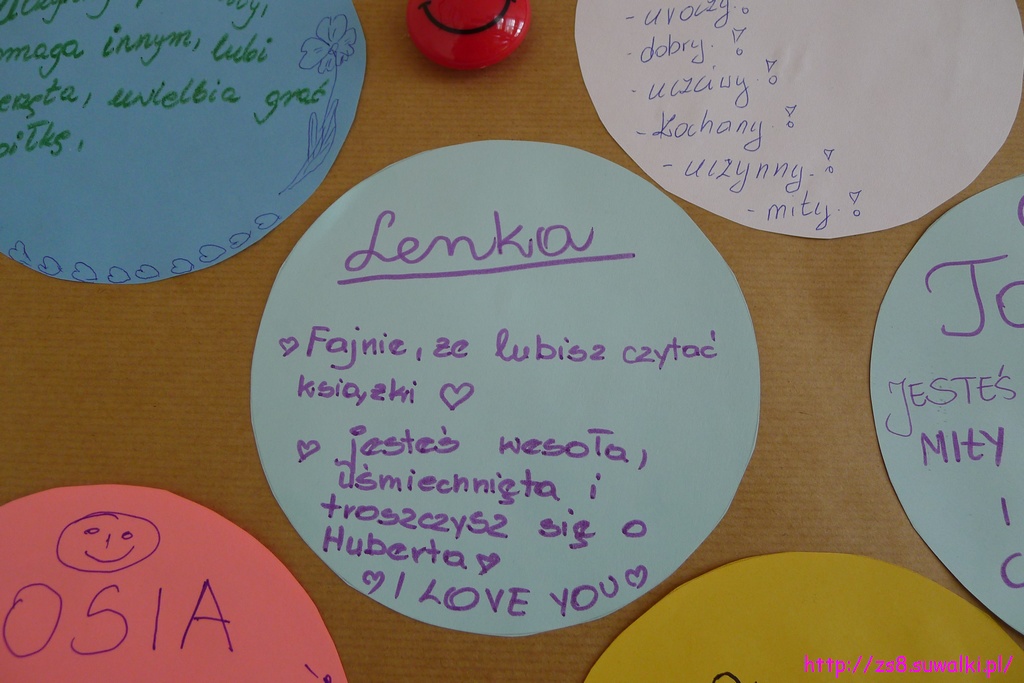 innym, lubi
uwielbia grać
- uroczy!
- dobry!
- uczciwy!
- kochany!
- uczynny!
- miły!
Lenka
Fajnie, że lubisz czytać
książki
jesteś wesoła,
uśmiechnięta i
troszczysz się o
Huberta
I LOVE YOU
JESTEŚ
MIŁY
I
OSIA
http://zs8.suwalki.pl/